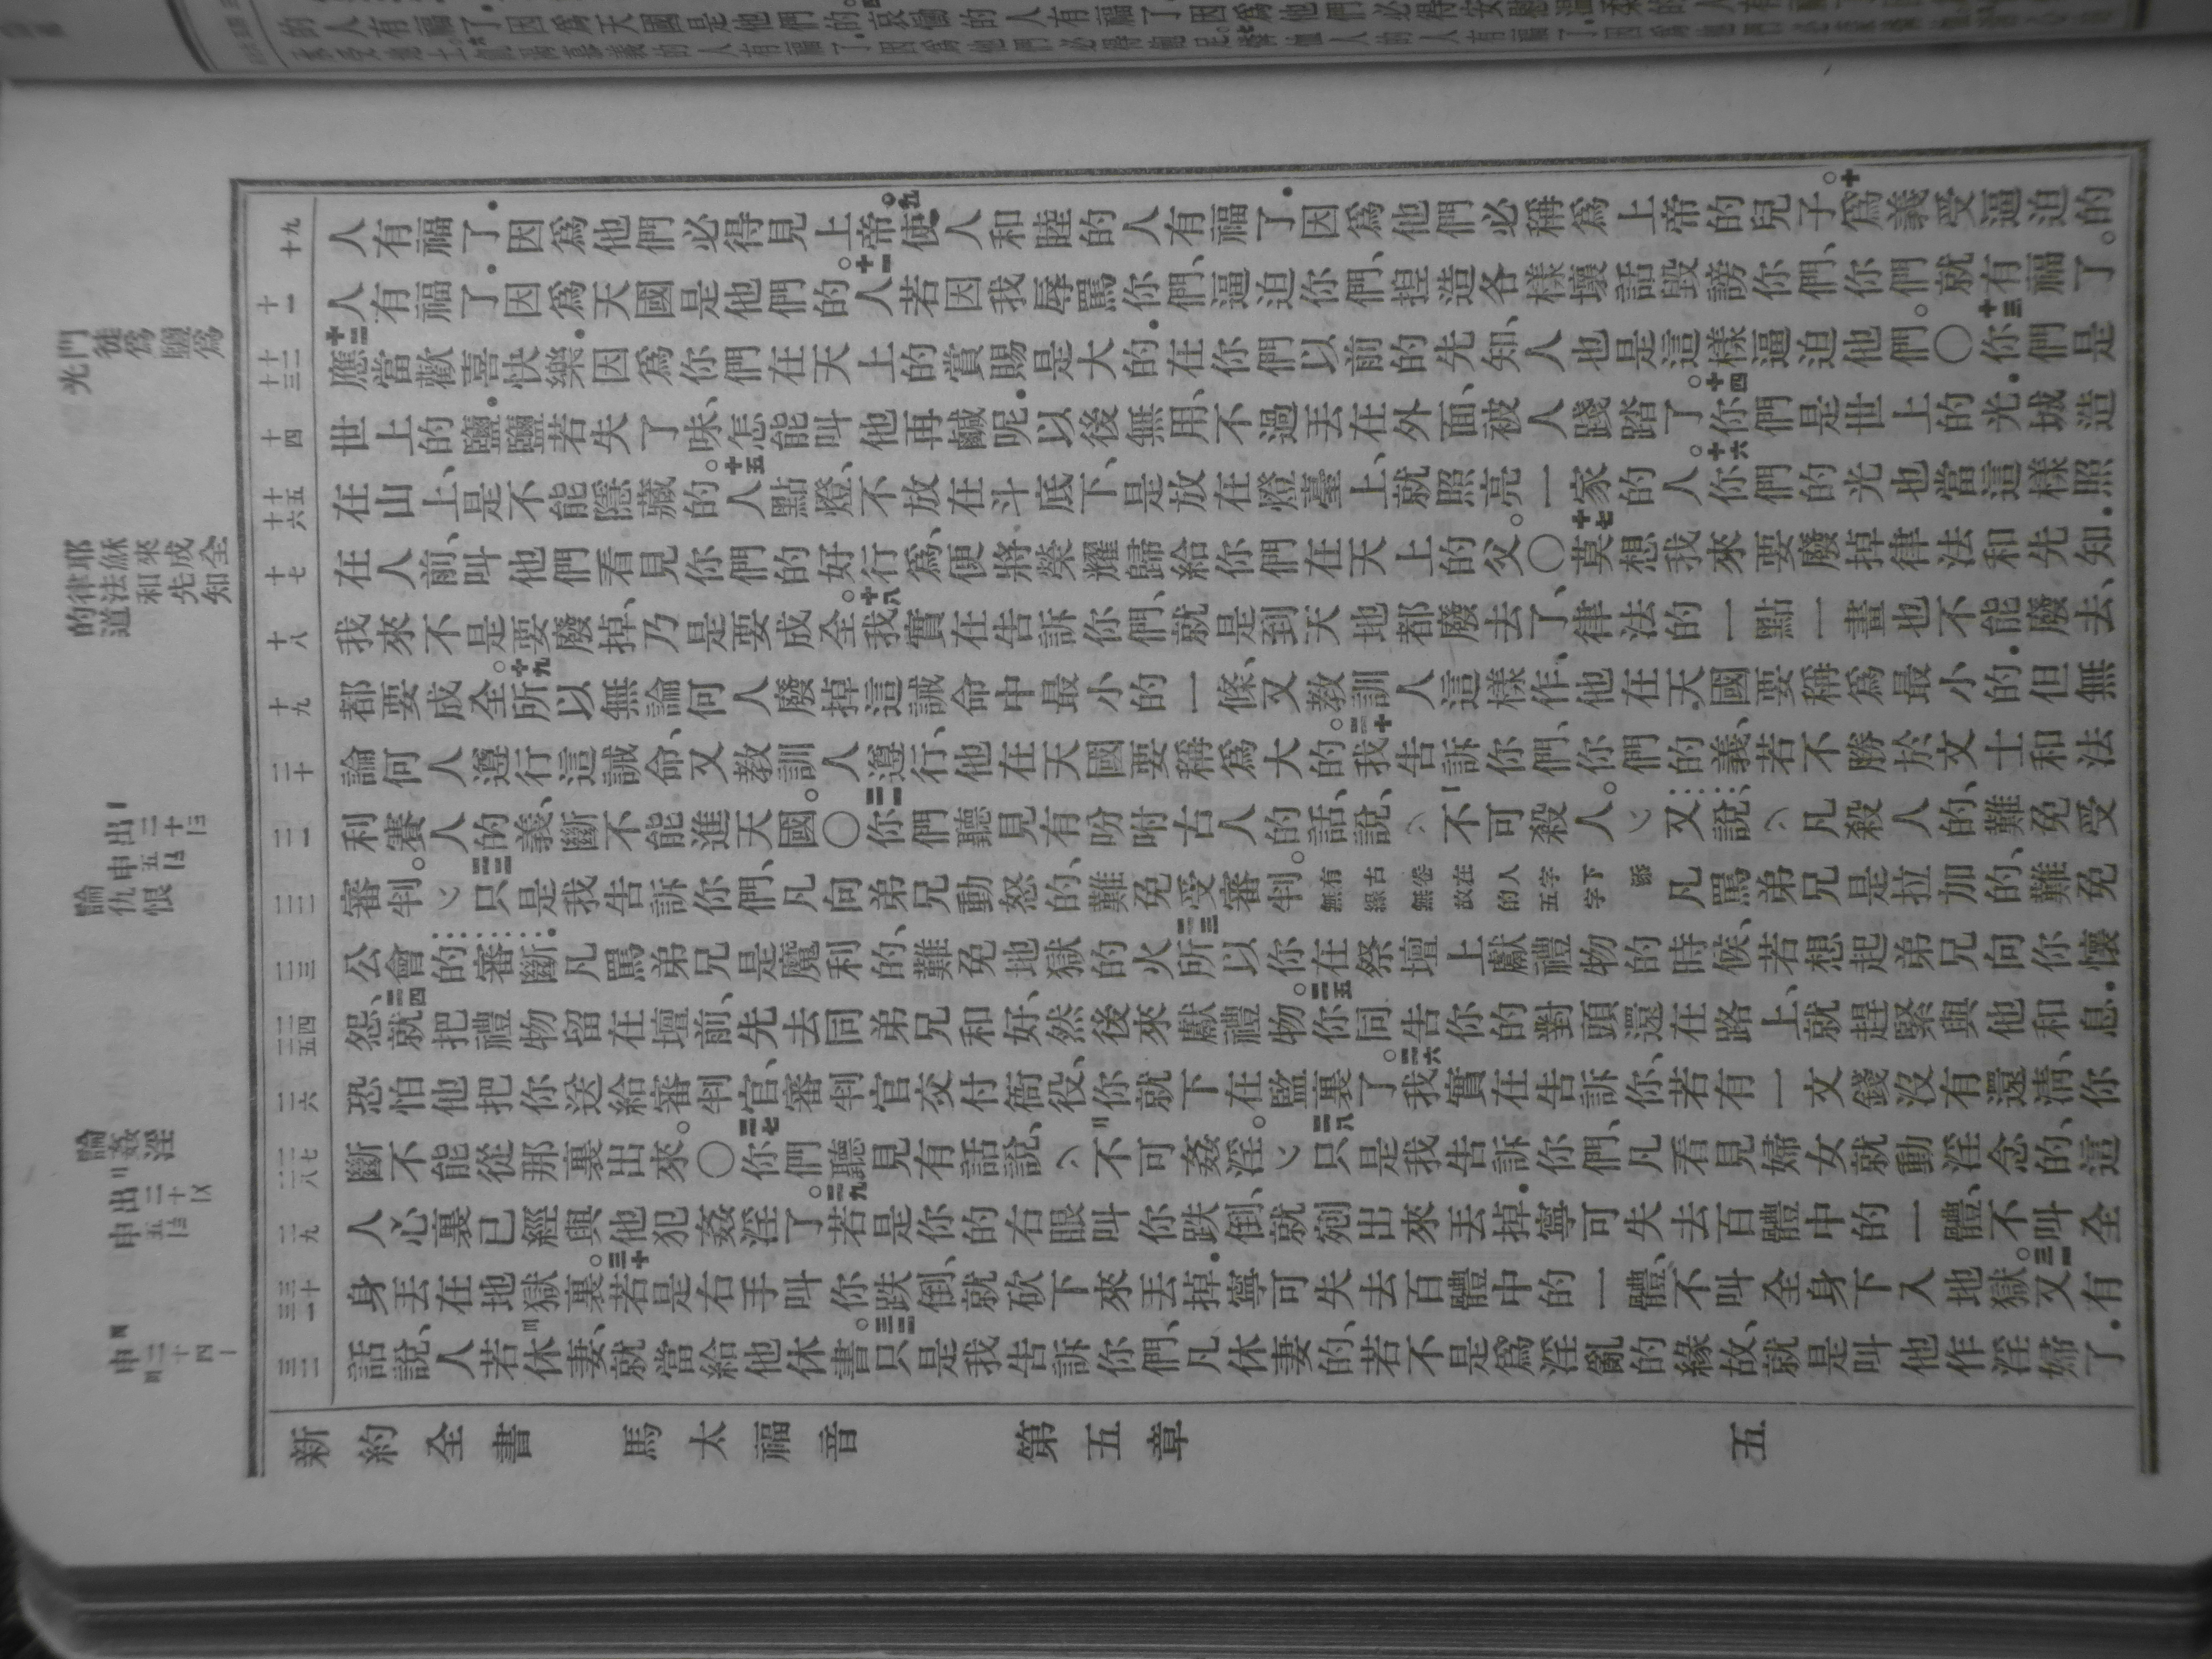 人有福了．因爲他們必得見上帝。九使人和睦的人有福了．因爲他們必稱爲上帝的兒子。十爲義受逼迫的
人有福了．因爲天國是他們的。十一人若因我辱駡你們、逼迫你們、揑造各樣壞話毀謗你們、你們就有福了。
十二應當歡喜快樂．因爲你們在天上的賞賜是大的．在你們以前的先知、人也是這樣逼迫他們。〇十三你們是
世上的鹽．鹽若失了味、怎能叫他再鹹呢．以後無用、不過丟在外面、被人踐踏了。十四你們是世上的光．城造
在山上、是不能隱藏的。十五人點燈、不放在斗底下、是放在燈臺上、就照亮一家的人。十六你們的光也當這樣照
在人前、叫他們看見你們的好行爲、便將榮耀歸給你們在天上的父。〇十七莫想我來要廢掉律法和先知．
我來不是要廢掉、乃是要成全。十八我實在告訴你們、就是到天地都廢去了、律法的一點一畫也不能廢去、
都要成全。十九所以無論何人廢掉這誡命中最小的一條、又教訓人這樣作、他在天國要稱爲最小的．但無
論何人遵行這誡命、又教訓人遵行、他在天國要稱爲大的。二十我告訴你們、你們的義、若不勝於文士和法
利賽人的義、斷不能進天國。〇二一你們聽見有吩咐古人的話、說、（不可殺人。）又說、（凡殺人的、難免受
審判。）二二只是我告訴你們、凡向弟兄動怒的、難免受審判。凡駡弟兄是拉加的、難免
公會的審斷．凡駡弟兄是魔利的、難免地獄的火。二三所以你在祭壇上獻禮物的時候、若想起弟兄向你懷
怨、二四就把禮物留在壇前、先去同弟兄和好、然後來獻禮物。二五你同告你的對頭還在路上、就趕緊與他和息．
恐怕他把你送給審判官、審判官交付衙役、你就下在監裏了。二六我實在告訴你、若有一文錢沒有還清、你
斷不能從那裏出來。〇二七你們聽見有話說、（不可姦淫。）二八只是我告訴你們、凡看見婦女就動淫念的、這
人心裏已經與他犯姦淫了。二九若是你的右眼叫你跌倒、就剜出來丟掉．寧可失去百體中的一體、不叫全
身丟在地獄裏。三十若是右手叫你跌倒、就砍下來丟掉．寧可失去百體中的一體、不叫全身下入地獄。三一又有
話說、人若休妻、就當給他休書。三二只是我告訴你們、凡休妻的、若不是爲淫亂的緣故、就是叫他作淫婦了．
新約全書　馬太福音　第五章　五